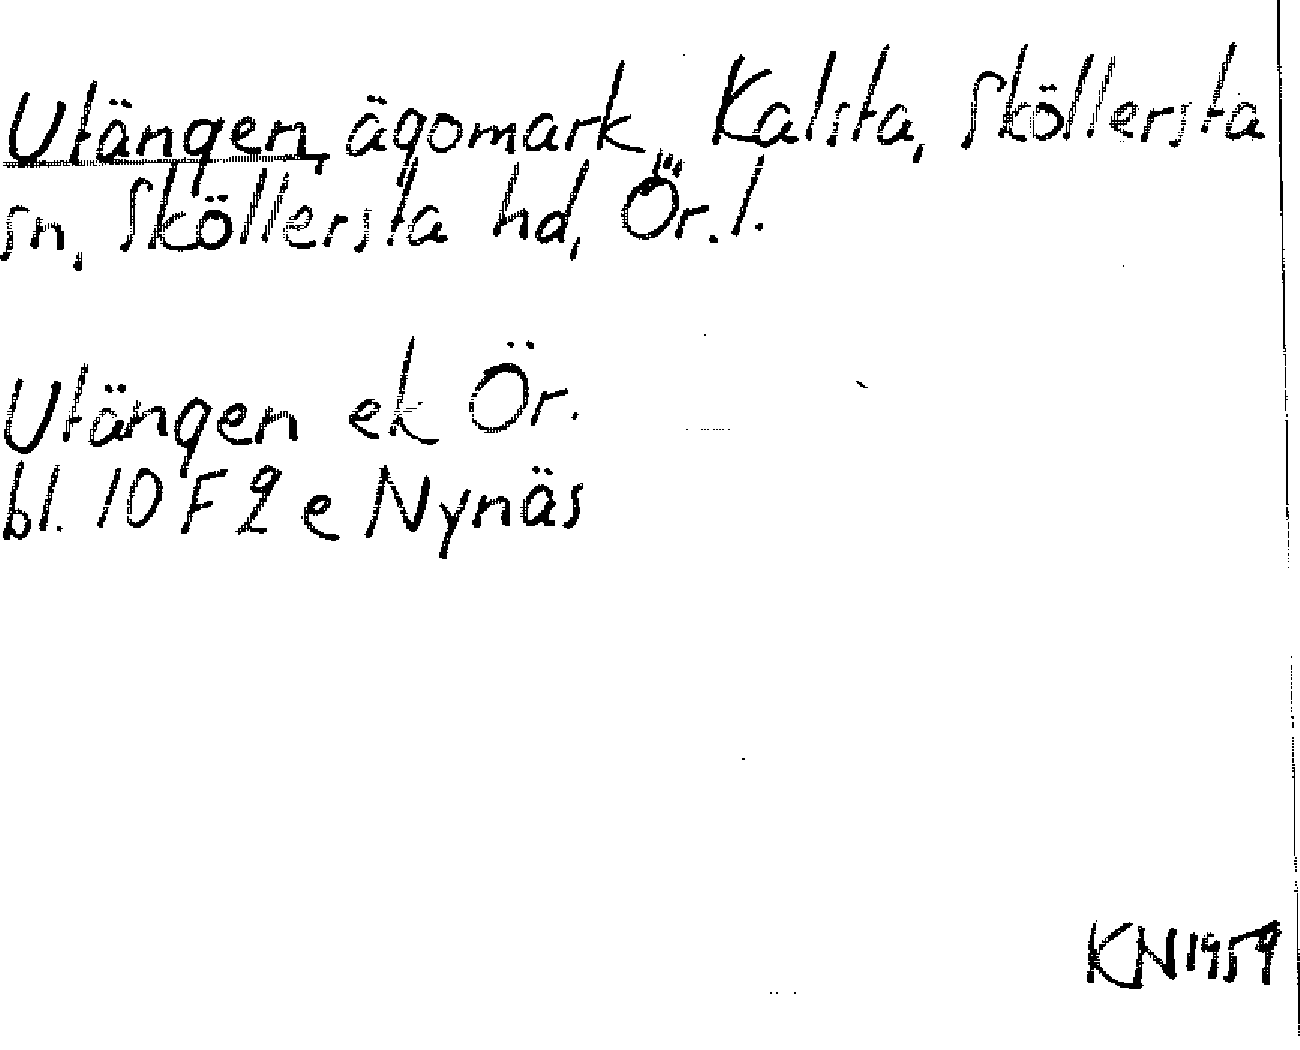 Utängen, ägomark, Kalsta, Sköllersta
sn, Sköllersta hd, Ör. l.
Utängen ek Ör.
bl. 10 F 2 e Nynäs
KN 1959